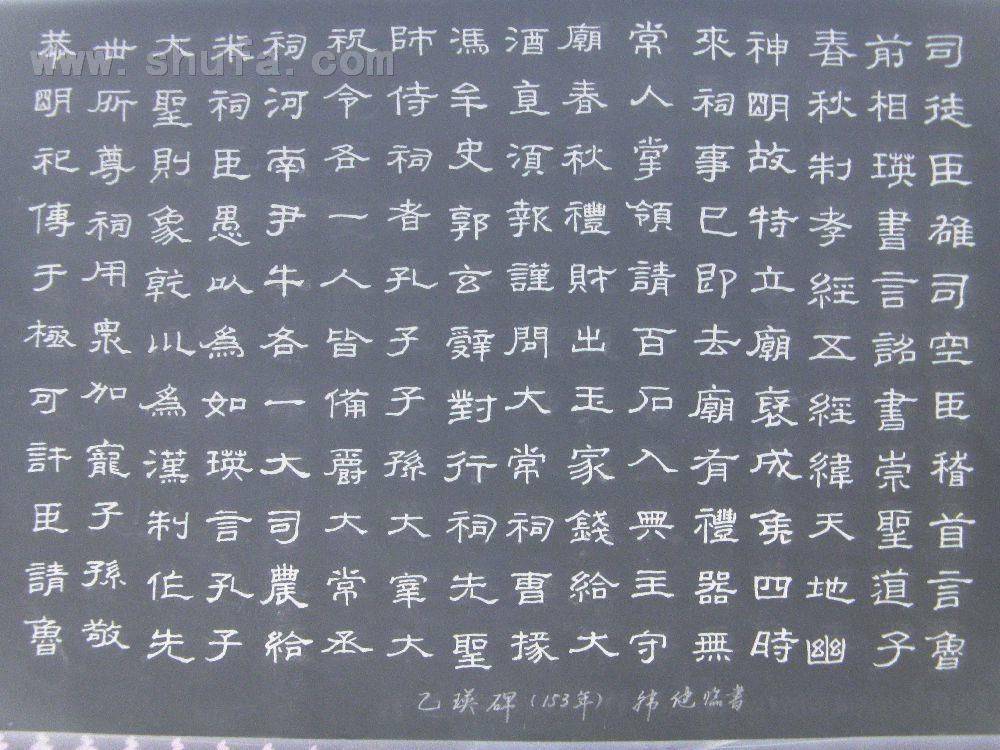 司徒臣雄司空臣稽首言魯
前相瑛書言詔書崇聖道子
春秋制孝經五經緯天地幽
神明故特立廟襃成侯四時
來祠事已即去廟有禮器無
常人掌領請百石入典主守
廟春秋禮財出王家錢給大
酒直須報謹問大常祠曹掾
馮牟史郭玄辭對行祠先聖
師侍祠者孔子子孫大宰大
祝令各一人皆備爵大常丞
祠河南尹牛各一大司農給
米祠臣愚以為如瑛言孔子
大聖則象乾川為漢制作先
世所尊祠用衆加寵子孫敬
恭明祀傳于極可許臣請魯
乙瑛碑（153年） 韩健臨書
www.shufa.com